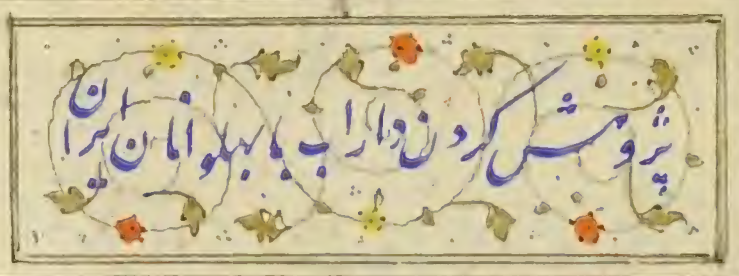 پژوهش کردن داراب با پهلوانان ایران